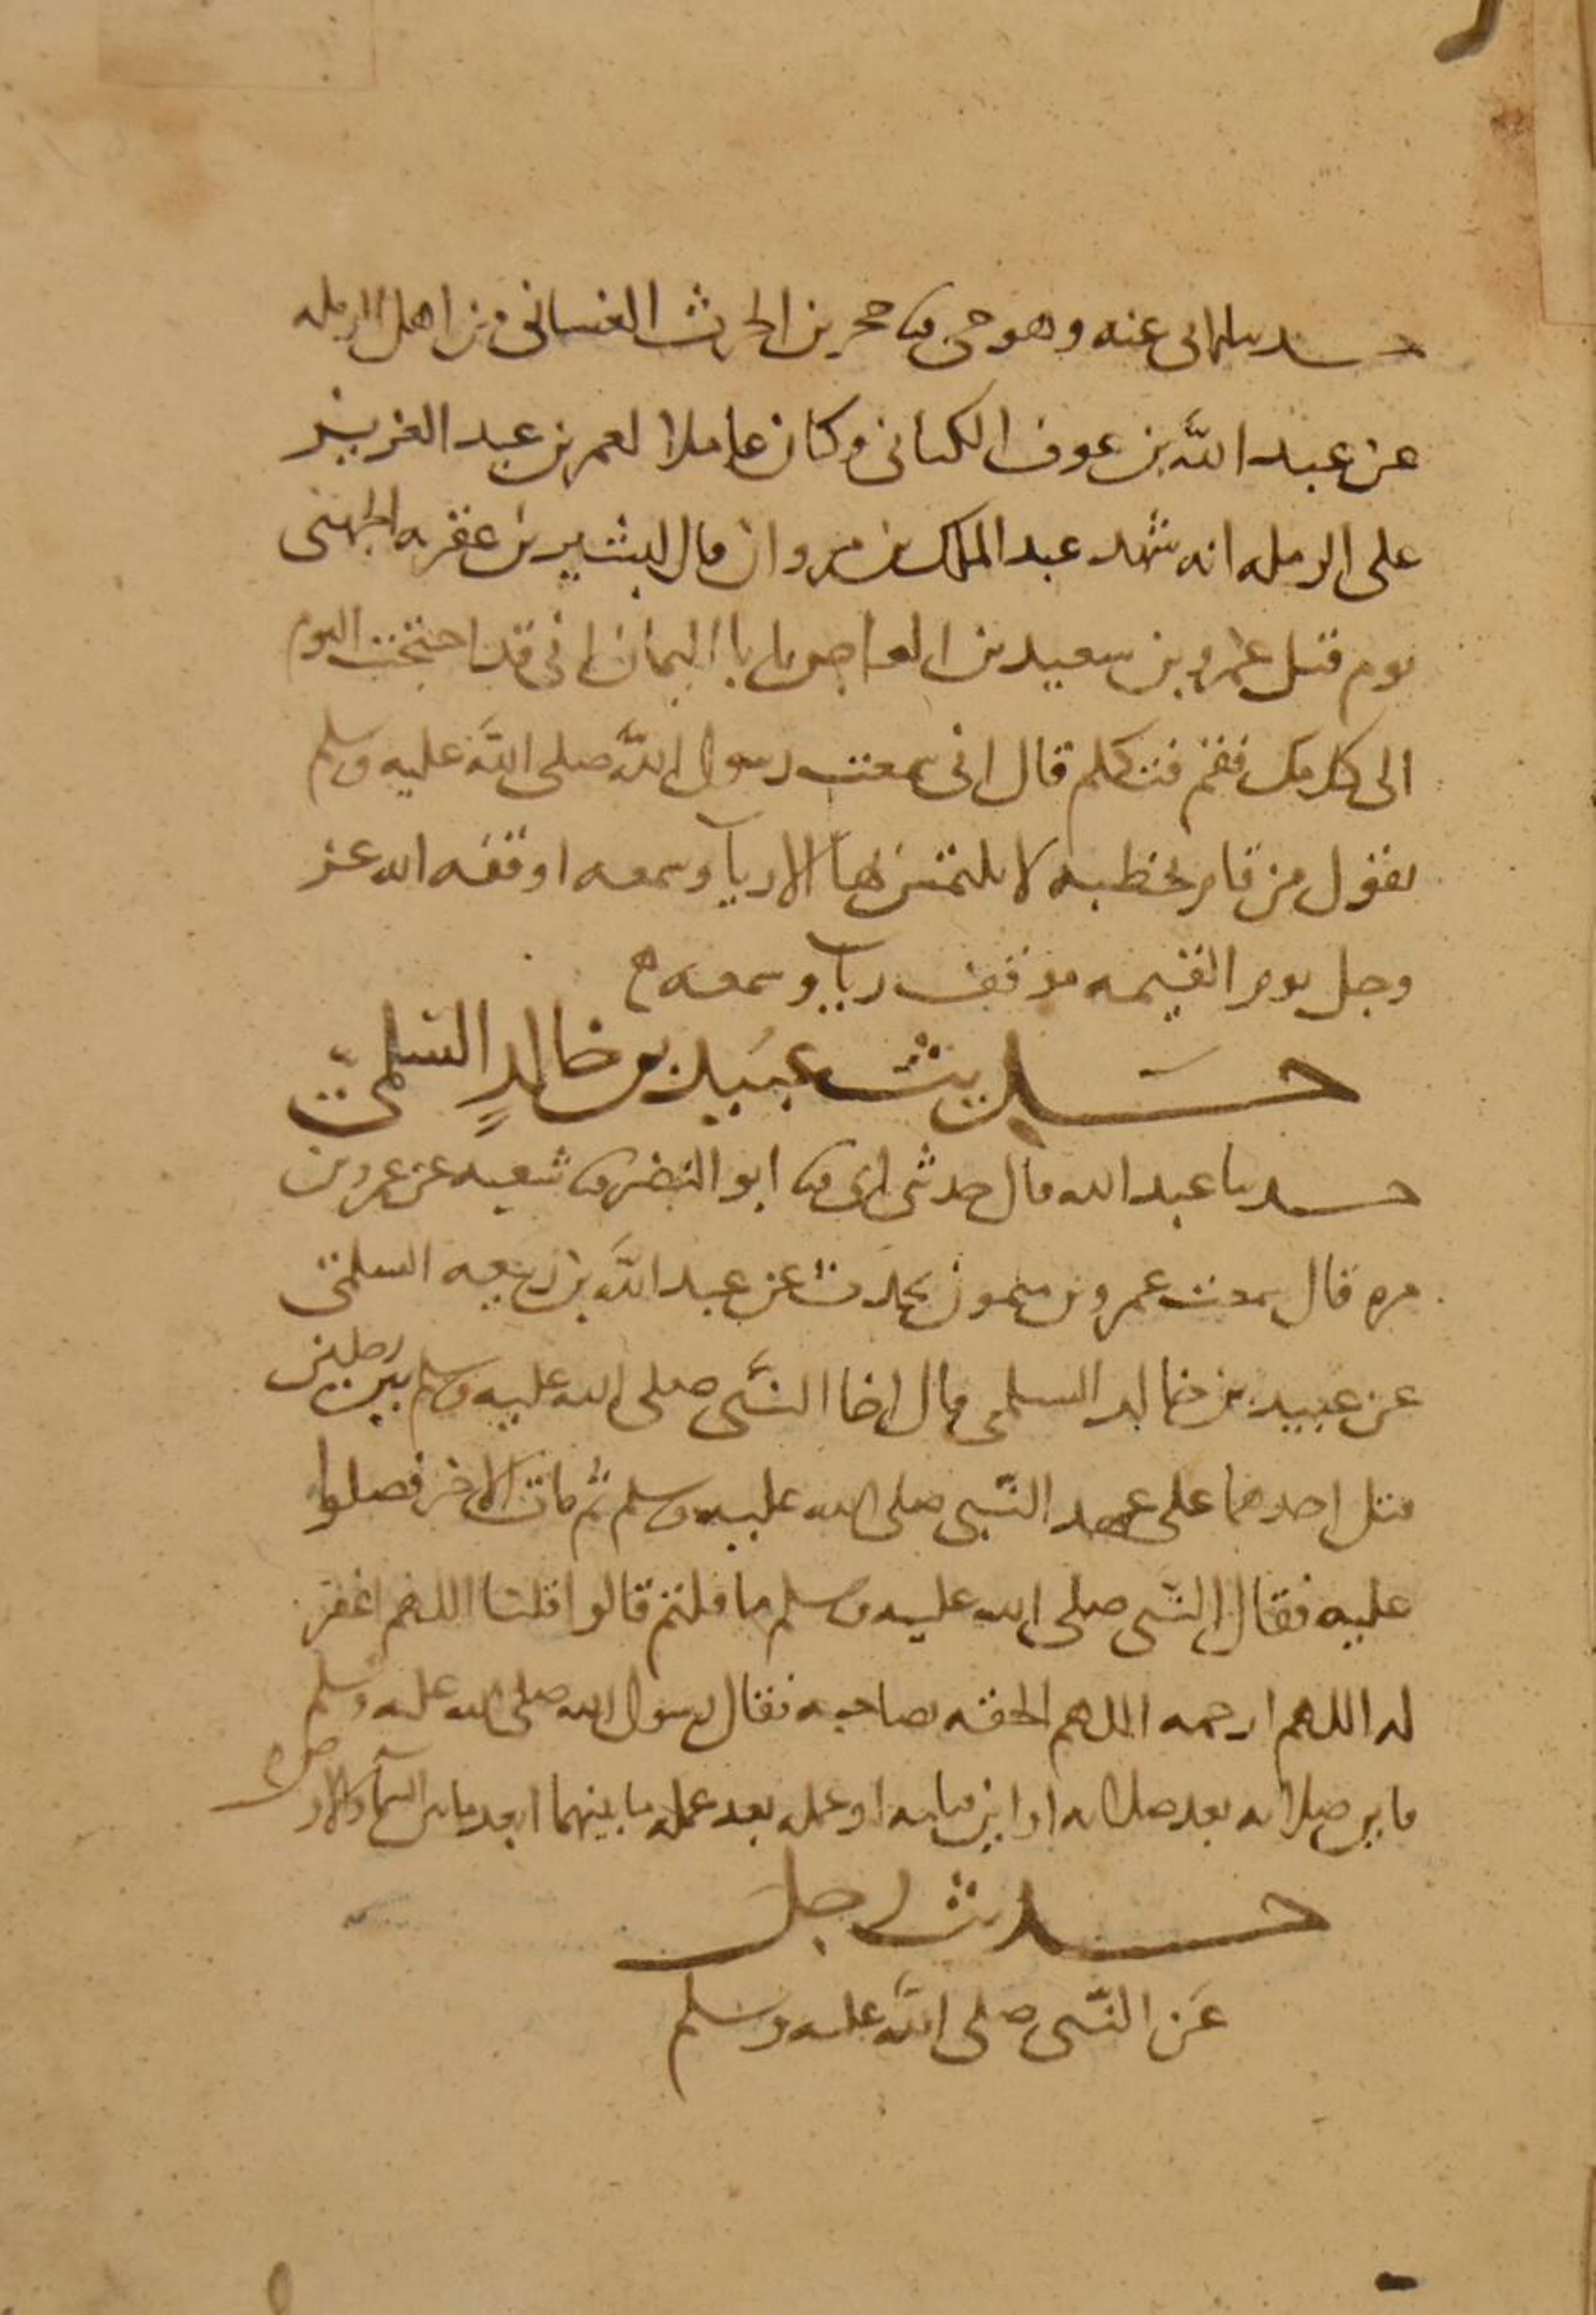 حدثنا ابى عنه وهو حى ثنا حجر بن الحرث الغسانى من اهل الرمله
عن عبد الله بن عوف الكنانى وكان عاملا لعمر بن عبد العزيز
على الرمله انه شهد عبد الملك بن مروان قال لبشير بن عقربه الجهنى
يوم قتل عمرو بن سعيد بن العاص يا با اليمان انى قد احتجت اليوم
الى كلامك فقم فتكلم قال انى سمعت رسول الله صلى الله عليه وسلم
يقول من قام بخطبه لا يلتمس بها الا رياً وسمعه اوقفه الله عز
وجل يوم القيمه موقف رياً وسمعه
حَديث عبَيد بن خالدٍ السلمىّ
حدثنا عبد الله قال حدثنى ابى ثنا ابو النضر ثنا شعبه عن عمرو بن
مره قال سمعت عمرو بن ميمون يحدث عن عبد الله بن ربيعه السلمى
عن عبيد بن خالد السلمى قال اخا النبى صلى الله عليه وسلم بين رجلين
قتل احدهما على عهد النبى صلى الله عليه وسلم ثم مات الاخر فصلوا
عليه فقال النبى صلى الله عليه وسلم ما قلتم قالوا قلنا اللهم اغفر
له اللهم ارحمه اللهم الحقه بصاحبه فقال رسول الله صلى الله عليه وسلم
فاين صلاته بعد صلاته او اين صيامه او عمله بعد عمله ما بينهما ابعد ما بين السمآ والارض
حديث رجل
عَن النبّى صلى الله عليه وسلم